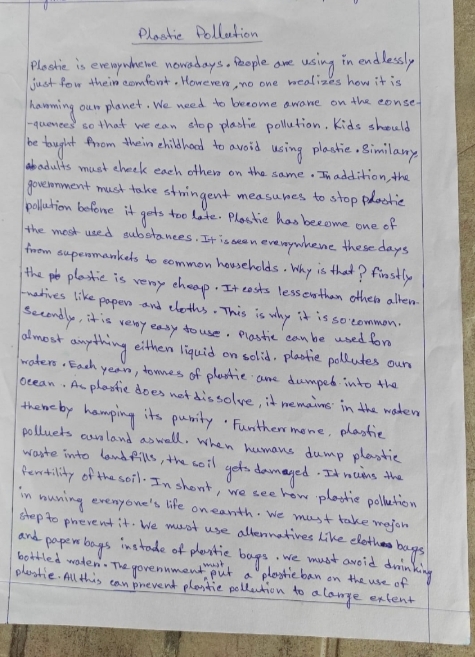 Plastic Pollution
Plastic is everywhere nowadays. People are using in endlessly
just for their comfort. However, no one realizes how it is
harming our planet. We need to become aware on the conse-
-quences so that we can stop plastic pollution. Kids should
be taught from their childhood to avoid using plastic. Similarry
adults must check each other on the same. In addition, the
government must take stringent measures to stop plastic
pollution before it gets too late. Plastic has become one of
the most used substances. It is seen everywhere these days
from supermarkets to common households. Why is that? firstly
the plastic is very cheap. It costs lesser than other alter-
-natives like paper and cloths. This is why it is so common.
Secondly, it is very easy to use. Plastic can be used for
almost anything either liquid or solid. plastic pollutes our
waters. Each year, tonnes of plastic are dumped into the
ocean. As plastic does not dissolve, it remains in the water
thereby hamping its purity. Furthermore, plastic
polluets our land as well. When humans dump plastic
waste into landfills, the soil gets damaged. It ruins the
fertility of the soil. In short, we see how plastic pollution
in runing everyone's life on earth. We must take major
step to prevent it. We must use alternatives like cloth bags
and paper bags instade of plastic bags. We must avoid drinking
bottled water. The government must put a plastic ban on the use of
plastic. All this can prevent plastic pollution to a large extent